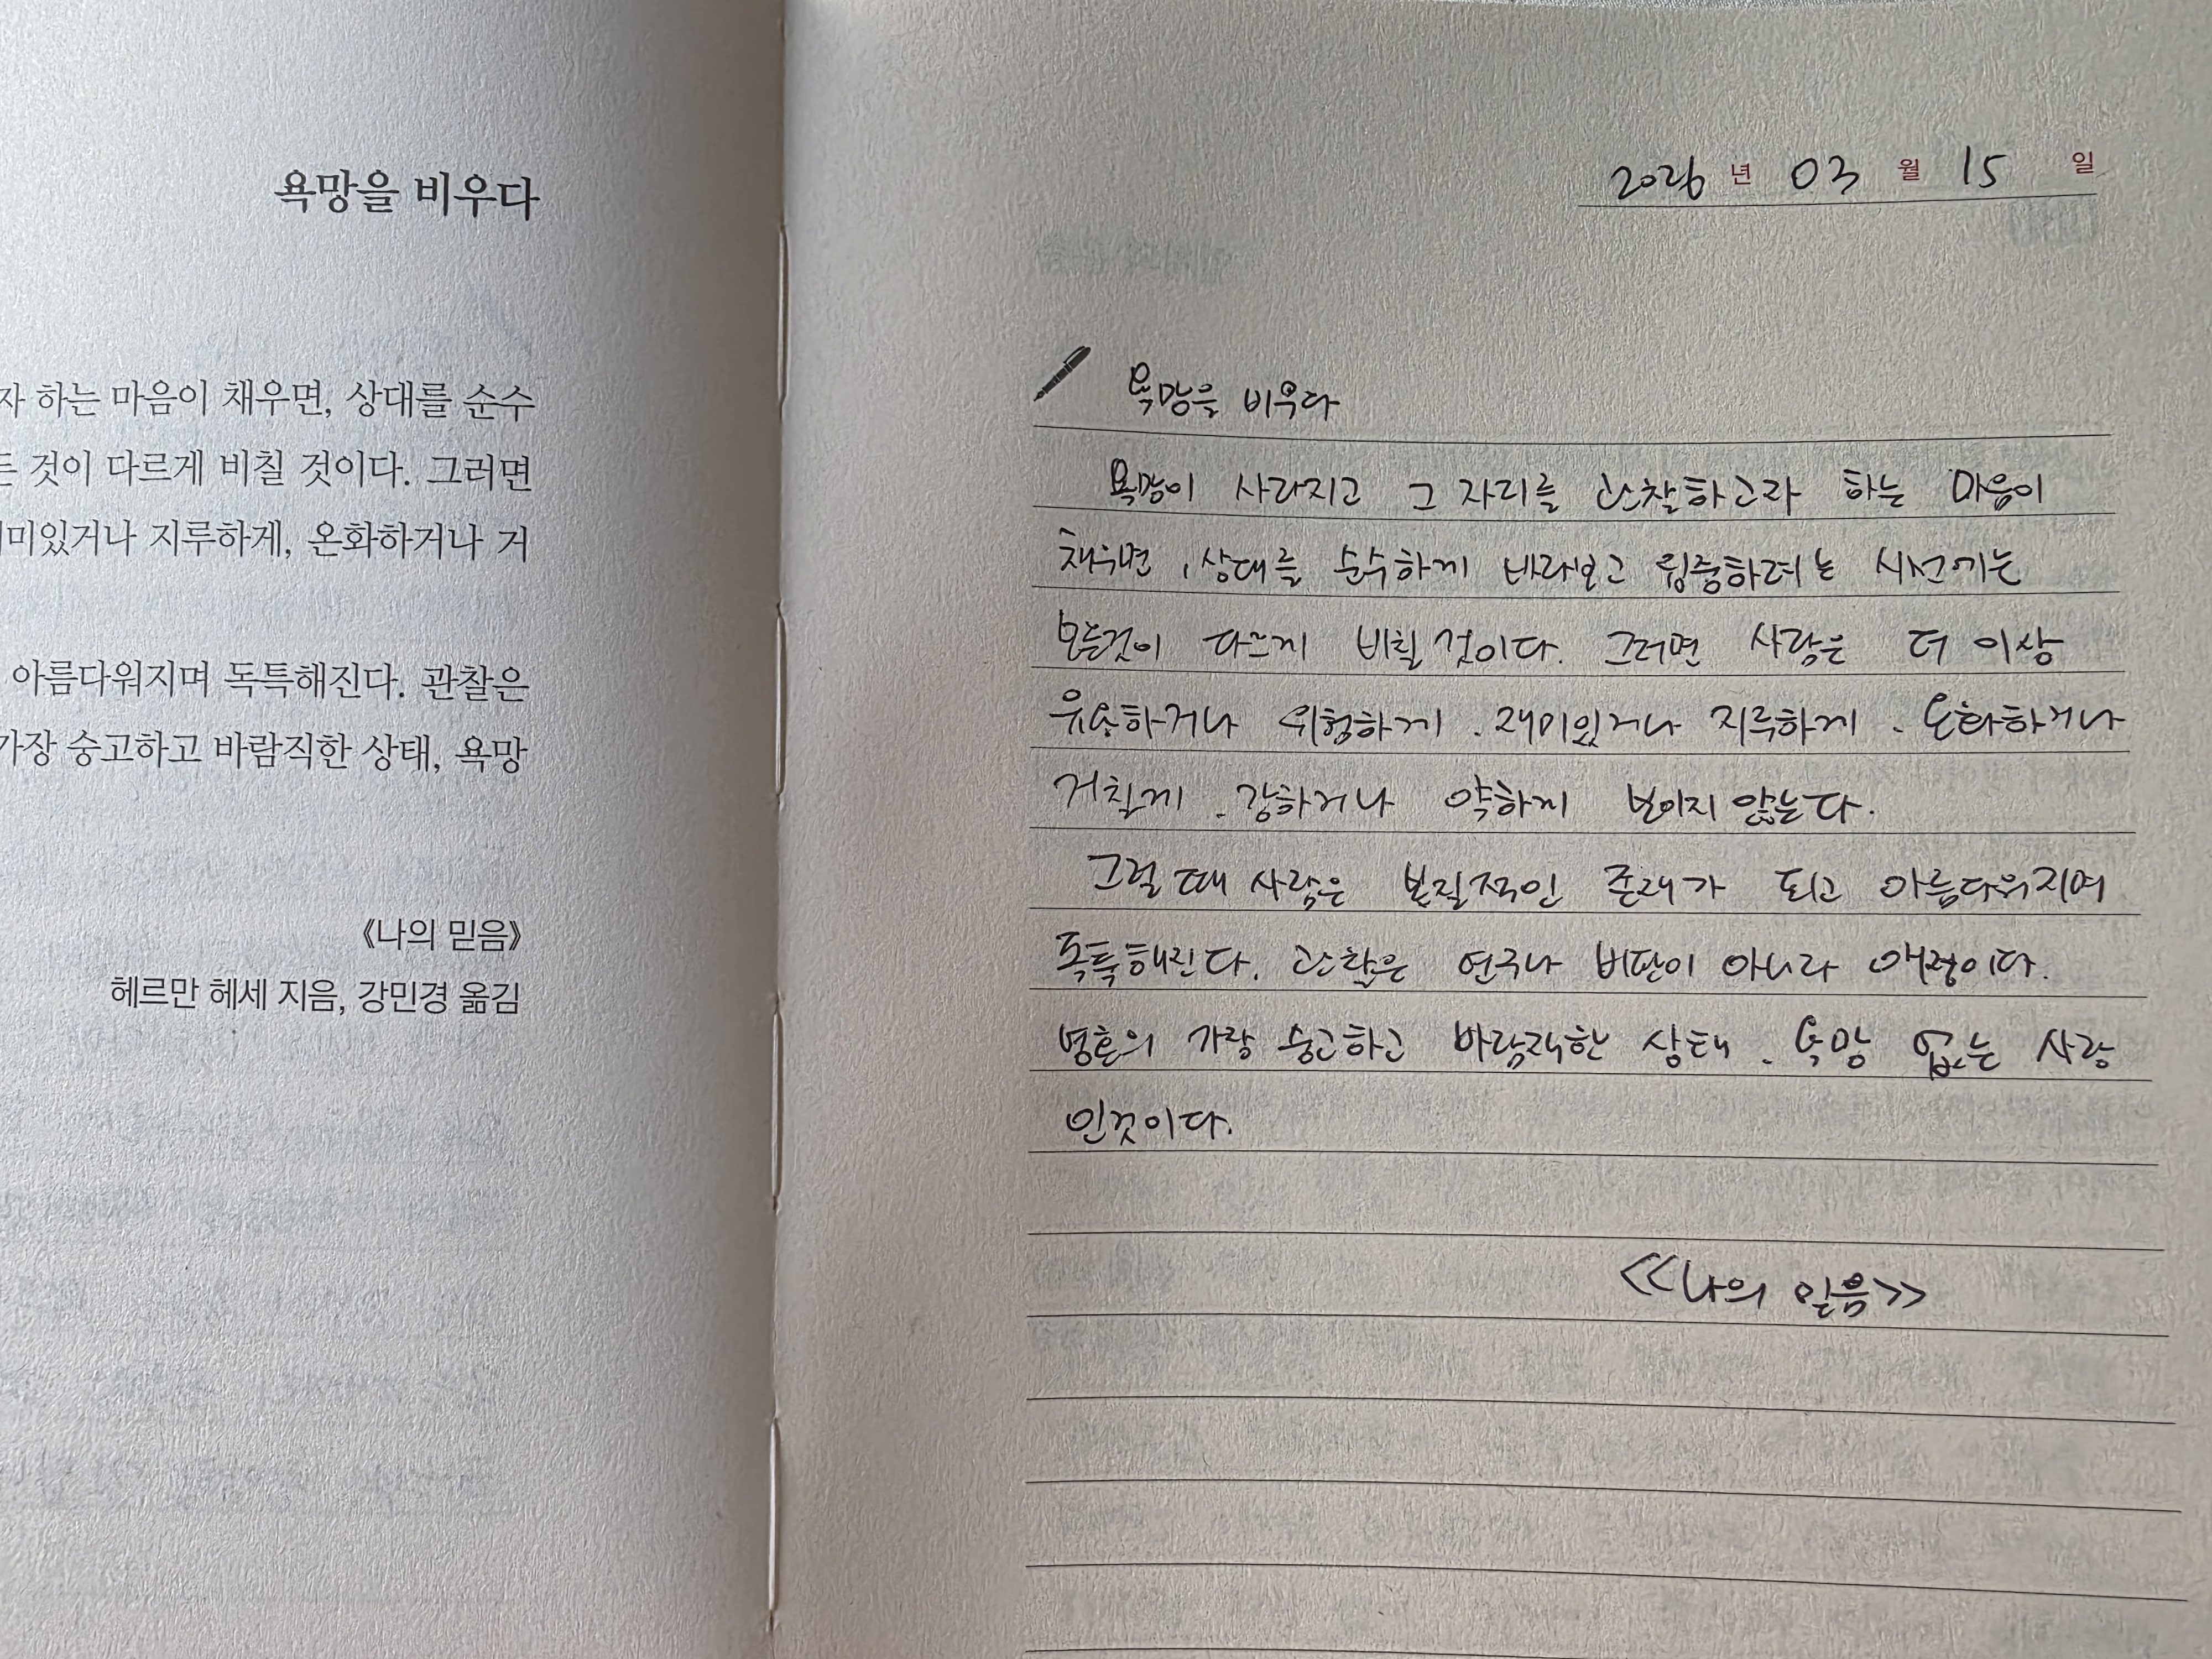 욕망을 비우다
자 하는 마음이 채우면, 상대를 순수
든 것이 다르게 비칠 것이다. 그러면
미있거나 지루하게, 온화하거나 거
아름다워지며 독특해진다. 관찰은
가장 숭고하고 바람직한 상태, 욕망
《나의 믿음》
헤르만 헤세 지음, 강민경 옮김
2026 년 03 월 15 일
욕망을 비우다
욕망이 사라지고 그 자리를 관찰하고자 하는 마음이
채우면, 상대를 순수하게 바라보고 하려는 시선에는
모든것이 다르게 비칠 것이다. 그러면 사람은 더 이상
유용하거나 위험하게, 재미있거나 지루하게, 온화하거나
거칠게, 강하거나 약하게 보이지 않는다.
그럴 때 사람은 본질적인 존재가 되고 아름다워지며
독특해진다. 관찰은 연구나 비판이 아니라 애정이다.
영혼의 가장 숭고하고 바람직한 상태, 욕망 없는 사랑
인것이다.
<<나의 믿음>>